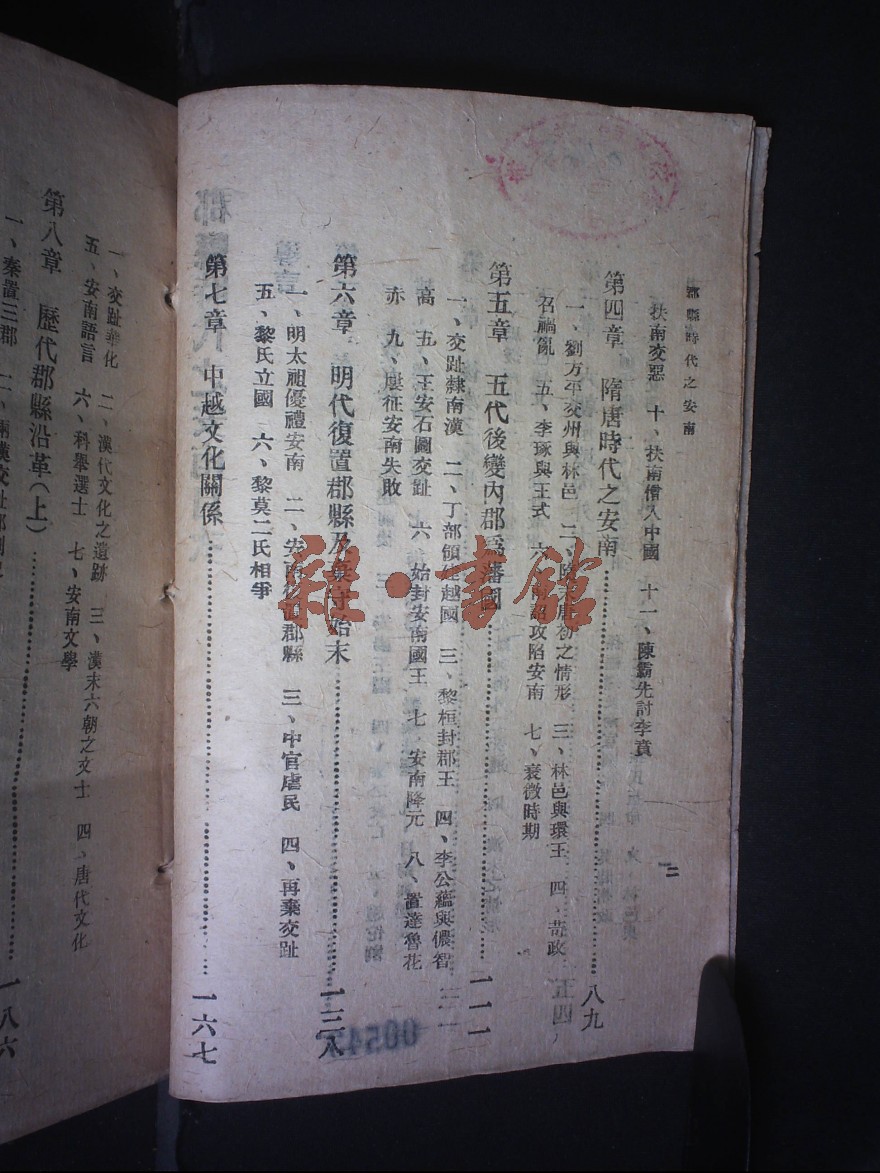 郡縣時代之安南
二
扶南交惡　十、扶南僧入中國　十一、陳霸先討李賁
第四章　隋唐時代之安南……八九
一、劉方平交州與林邑　二、隋末唐初之情形　三、林邑與環王　四、苛政
召禍亂　五、李琢與王式　六、南詔攻陷安南　七、衰微時期
第五章　五代後變內郡爲藩國……一一一
一、交趾隸南漢　二、丁部領建越國　三、黎桓封郡王　四、李公蘊與儂智
高　五、王安石圖交趾　六、始封安南國王　七、安南降元　八、置達魯花
赤　九、屢征安南失敗
第六章　明代復置郡縣及棄守始末……一三八
一、明太祖優禮安南　二、安南復置郡縣　三、中官虐民　四、再棄交趾
五、黎氏立國　六、黎莫二氏相爭
第七章　中越文化關係……一六七
一、交趾華化　二、漢代文化之遺跡　三、漢末六朝之文士　四、唐代文化
五、安南語言　六、科舉選士　七、安南文學
第八章　歷代郡縣沿革（上）……一八六
一、秦置三郡　二、兩漢交趾郡
雜·書館